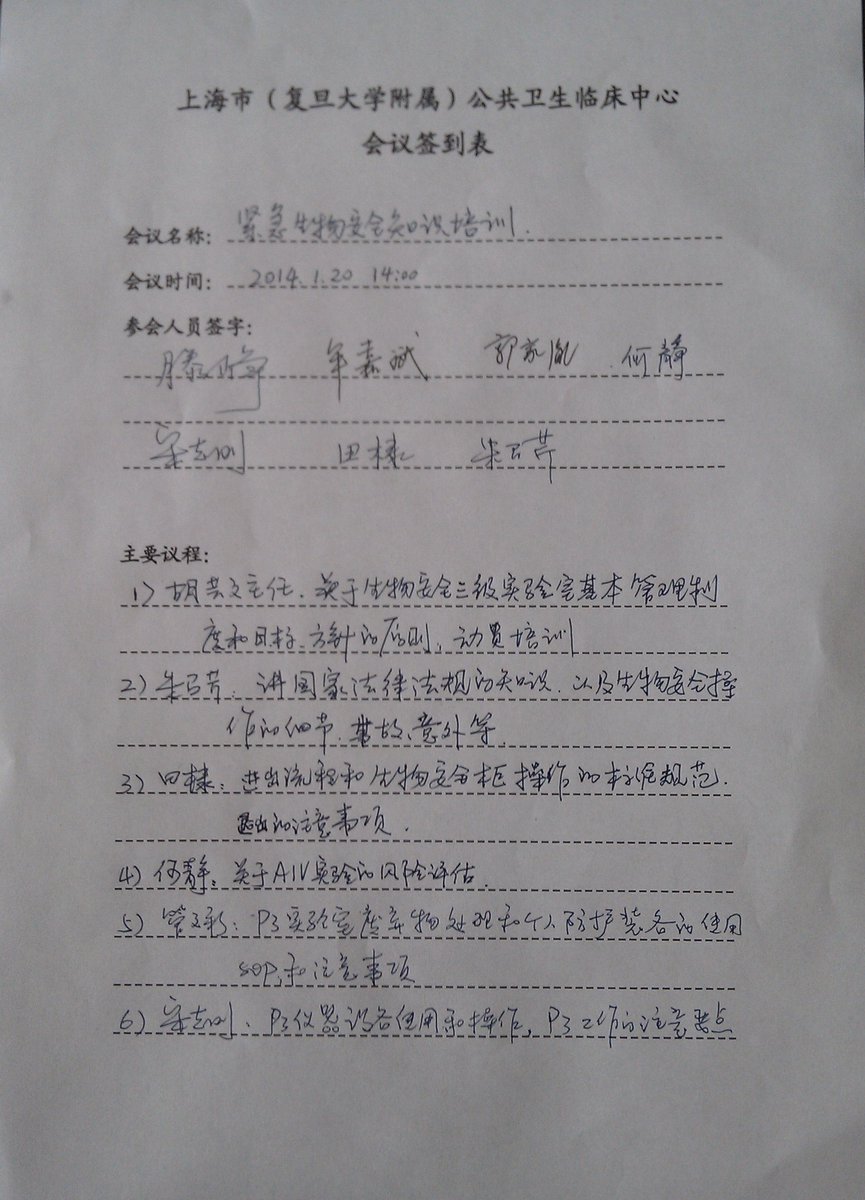 上海市（复旦大学附属）公共卫生临床中心
会议签到表
会议名称：紧急生物安全知识培训.
会议时间：2014.1.20 14:00
参会人员签字：
滕峥 年嘉斌 郭家胤 何静
宋志刚 田棣 朱召芹
主要议程：
1) 胡芸文主任. 关于生物安全三级实验室基本管理制
度和目标、方针的原则, 动员培训
2) 朱召芹: 讲国家法律法规的知识. 以及生物安全操
作的细节. 事故、意外等.
3) 田棣: 进出流程和生物安全柜操作的标准规范.
退出的注意事项.
4) 何静: 关于AIV实验的风险评估.
5) 管文彩: P3实验室废弃物处理和个人防护装备的使用
SOP, 和注意事项
6) 宋志刚: P3仪器设备使用和操作, P3工作的注意要点